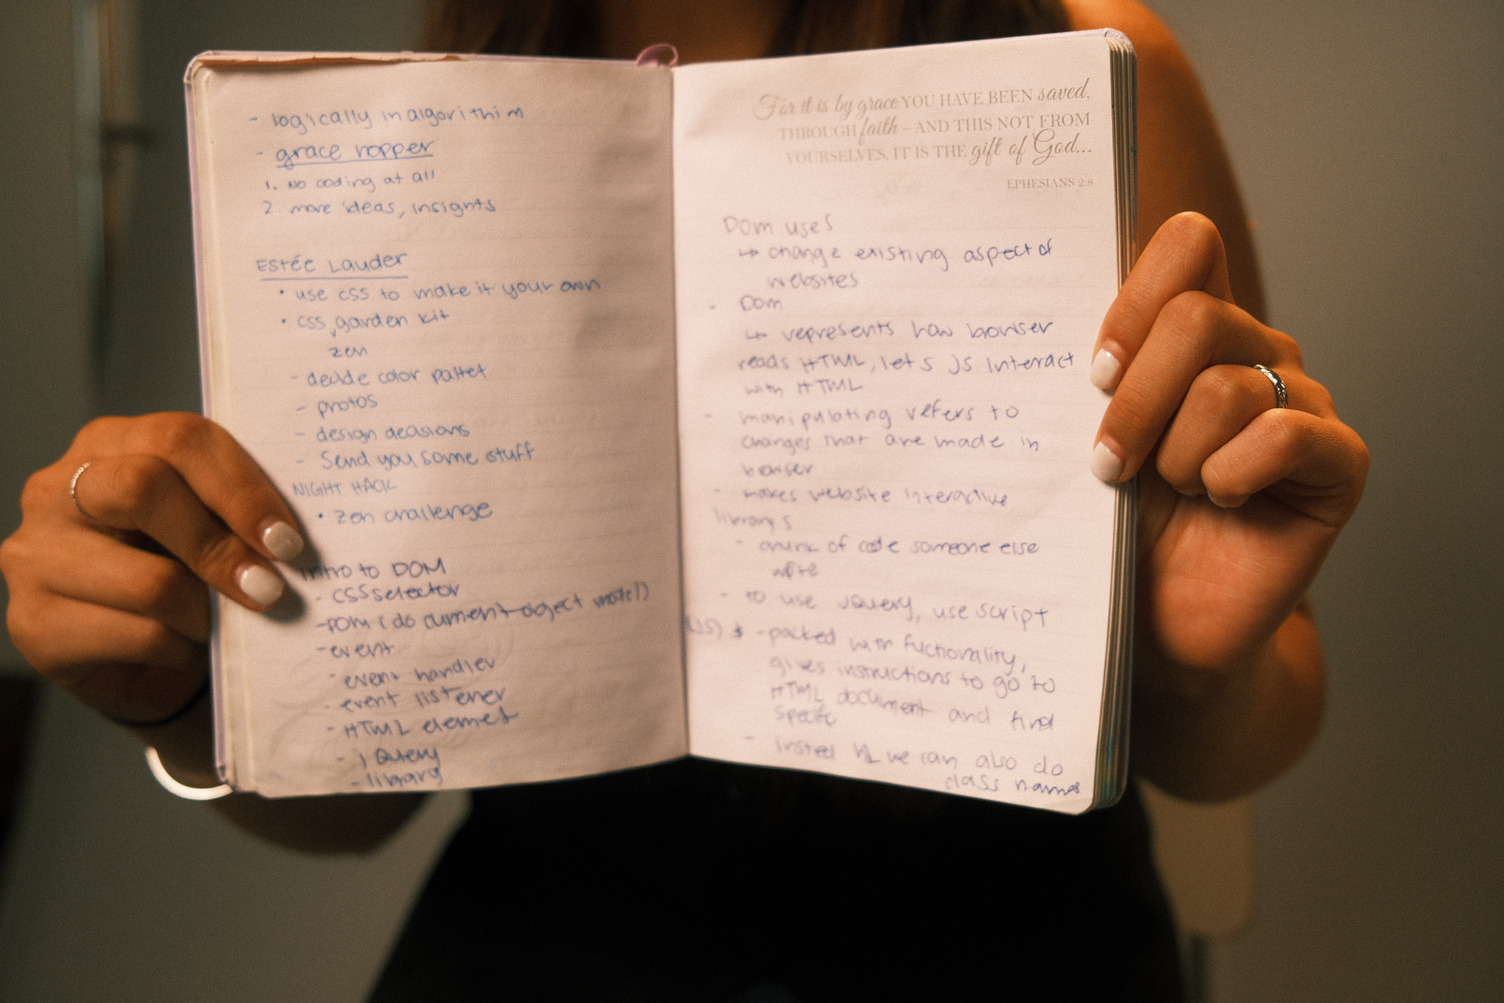 - logically in algorithim
- grace hopper
1. No coding at all
2. more ideas, insights
Estée Lauder
• use css to make it your own
• css garden kit
zen
- decide color pallet
- photos
- design decisions
- Send you some stuff
NIGHT HACK
• zen challenge
Intro to DOM
- CSS selector
- DOM (document object model)
- event
- event handler
- event listener
- HTML element
- jQuery
- library
For it is by grace YOU HAVE BEEN saved,
THROUGH faith – AND THIS NOT FROM
YOURSELVES, IT IS THE gift of God...
EPHESIANS 2:8
DOM uses
↳ change existing aspect of
websites
- Dom
↳ represents how browser
reads HTML, let's JS interact
with HTML
- manipulating refers to
changes that are made in
browser
- makes website interactive
library s
- chunk of code someone else
wrote
- to use jQuery, use script
(JS) $ - packed with fuctionality,
gives instructions to go to
HTML document and find
specific
- insted h1 we can also do
class names